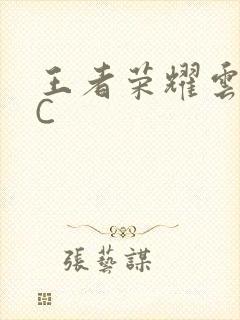 王者荣耀雲
C
張藝謀